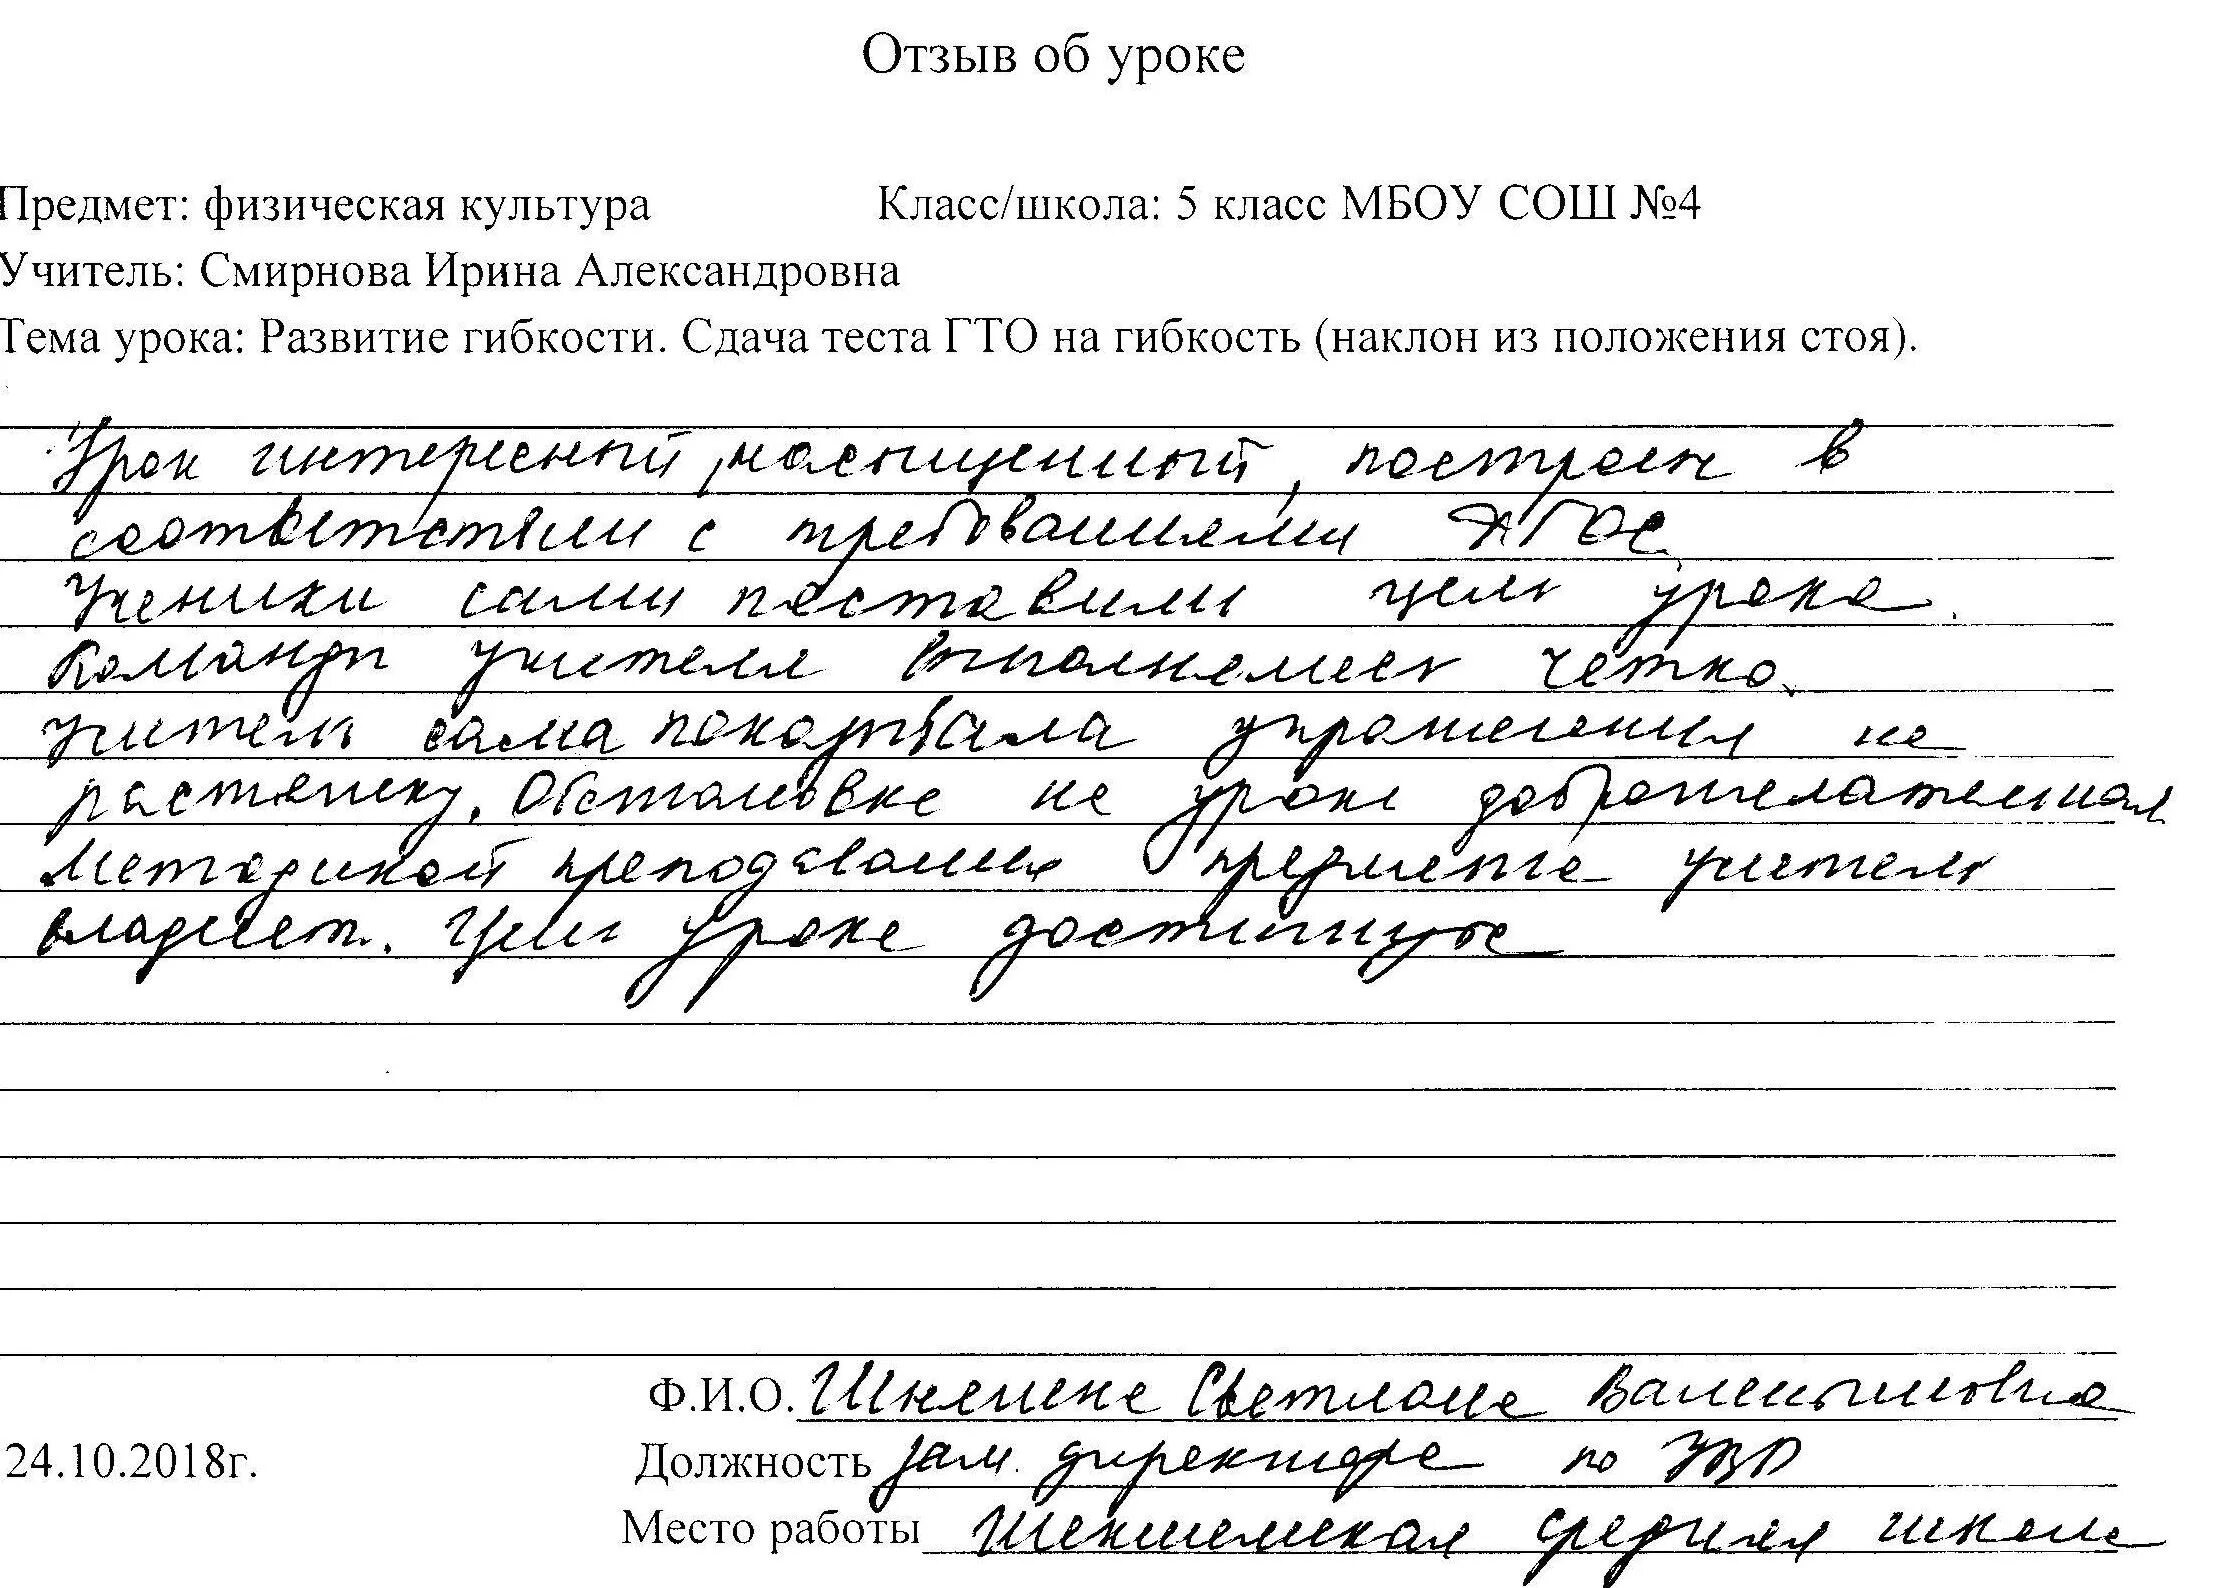 Отзыв об уроке
Предмет: физическая культура Класс/школа: 5 класс МБОУ СОШ №4
Учитель: Смирнова Ирина Александровна
Тема урока: Развитие гибкости. Сдача теста ГТО на гибкость (наклон из положения стоя).
Урок интересный, насыщенный, построен в
соответствии с требованиями ФГОС
Ученики сами поставили цель урока.
Команды учителя выполнялись четко.
Учитель сама показывала упражнения на
растяжку. Обстановка на уроке доброжелательная
Методикой преподавания предмета учитель
владеет. Цель урока достигнута
Ф.И.О. Светлана Валентиновна
24.10.2018г. Должность зам. директора по УВР
Место работы Шекшемская средняя школа